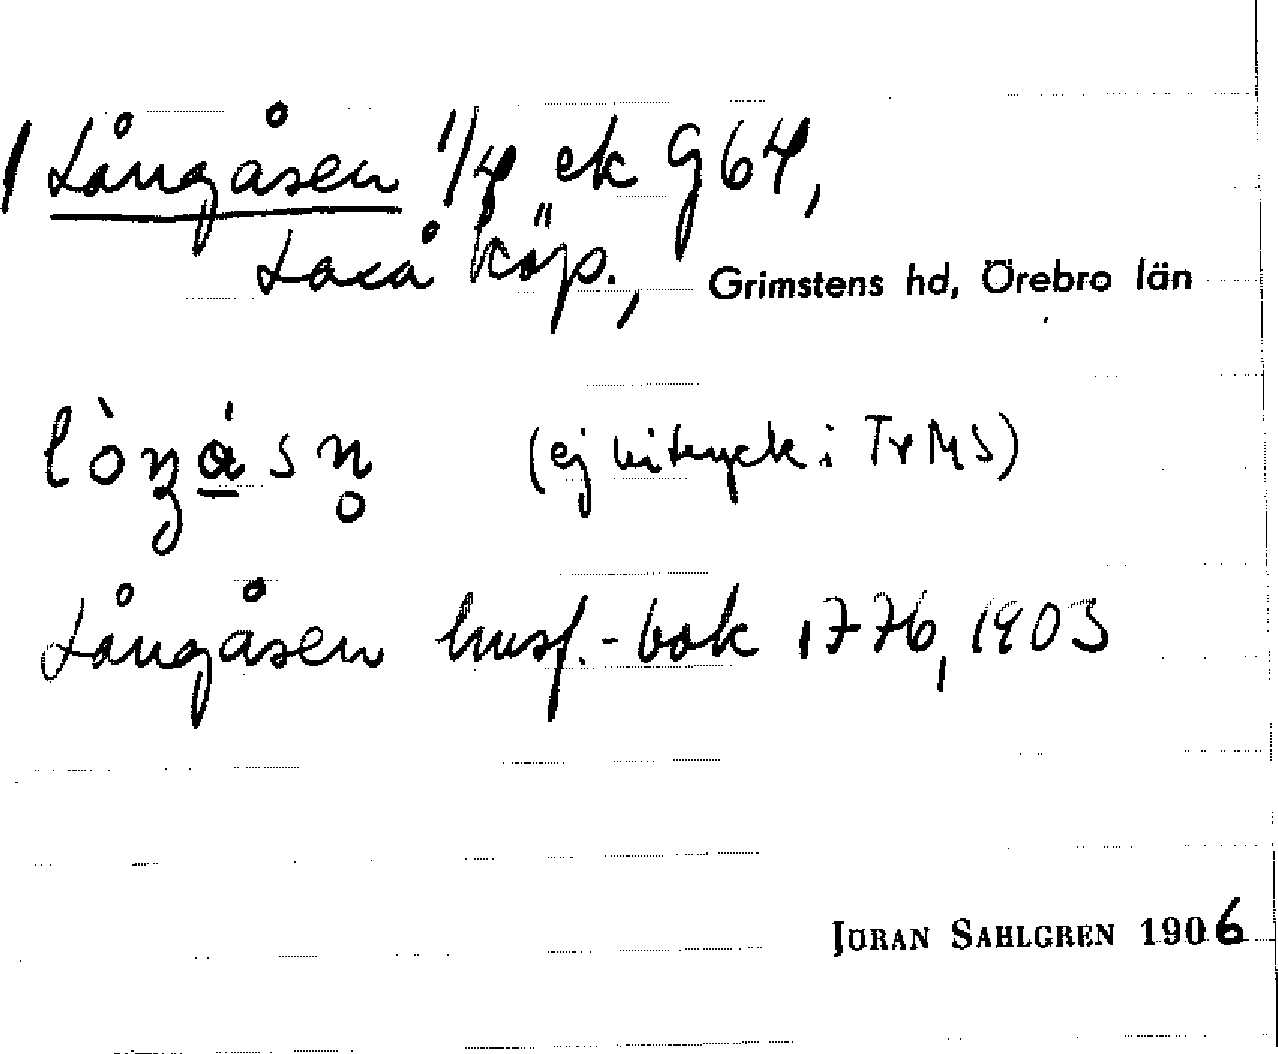 Långåsen 1/4 ek G64,
Laxå köp., Grimstens hd, Örebro län
lòŋá̱sn̥ (ej i TrMS)
Långåsen husf.-bok 1776, 1903
JÖRAN SAHLGREN 1906